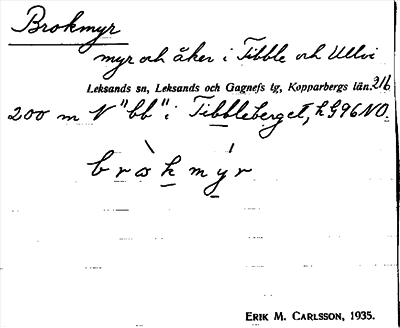 Brokmyr
myr och åker i Tibble och Ullvi
Leksands sn, Leksands och Gagnefs tg, Kopparbergs län. 216
200 m N "bb" i Tibbleberget, k G96NO.
bròkmýr
ERIK M. CARLSSON, 1935.